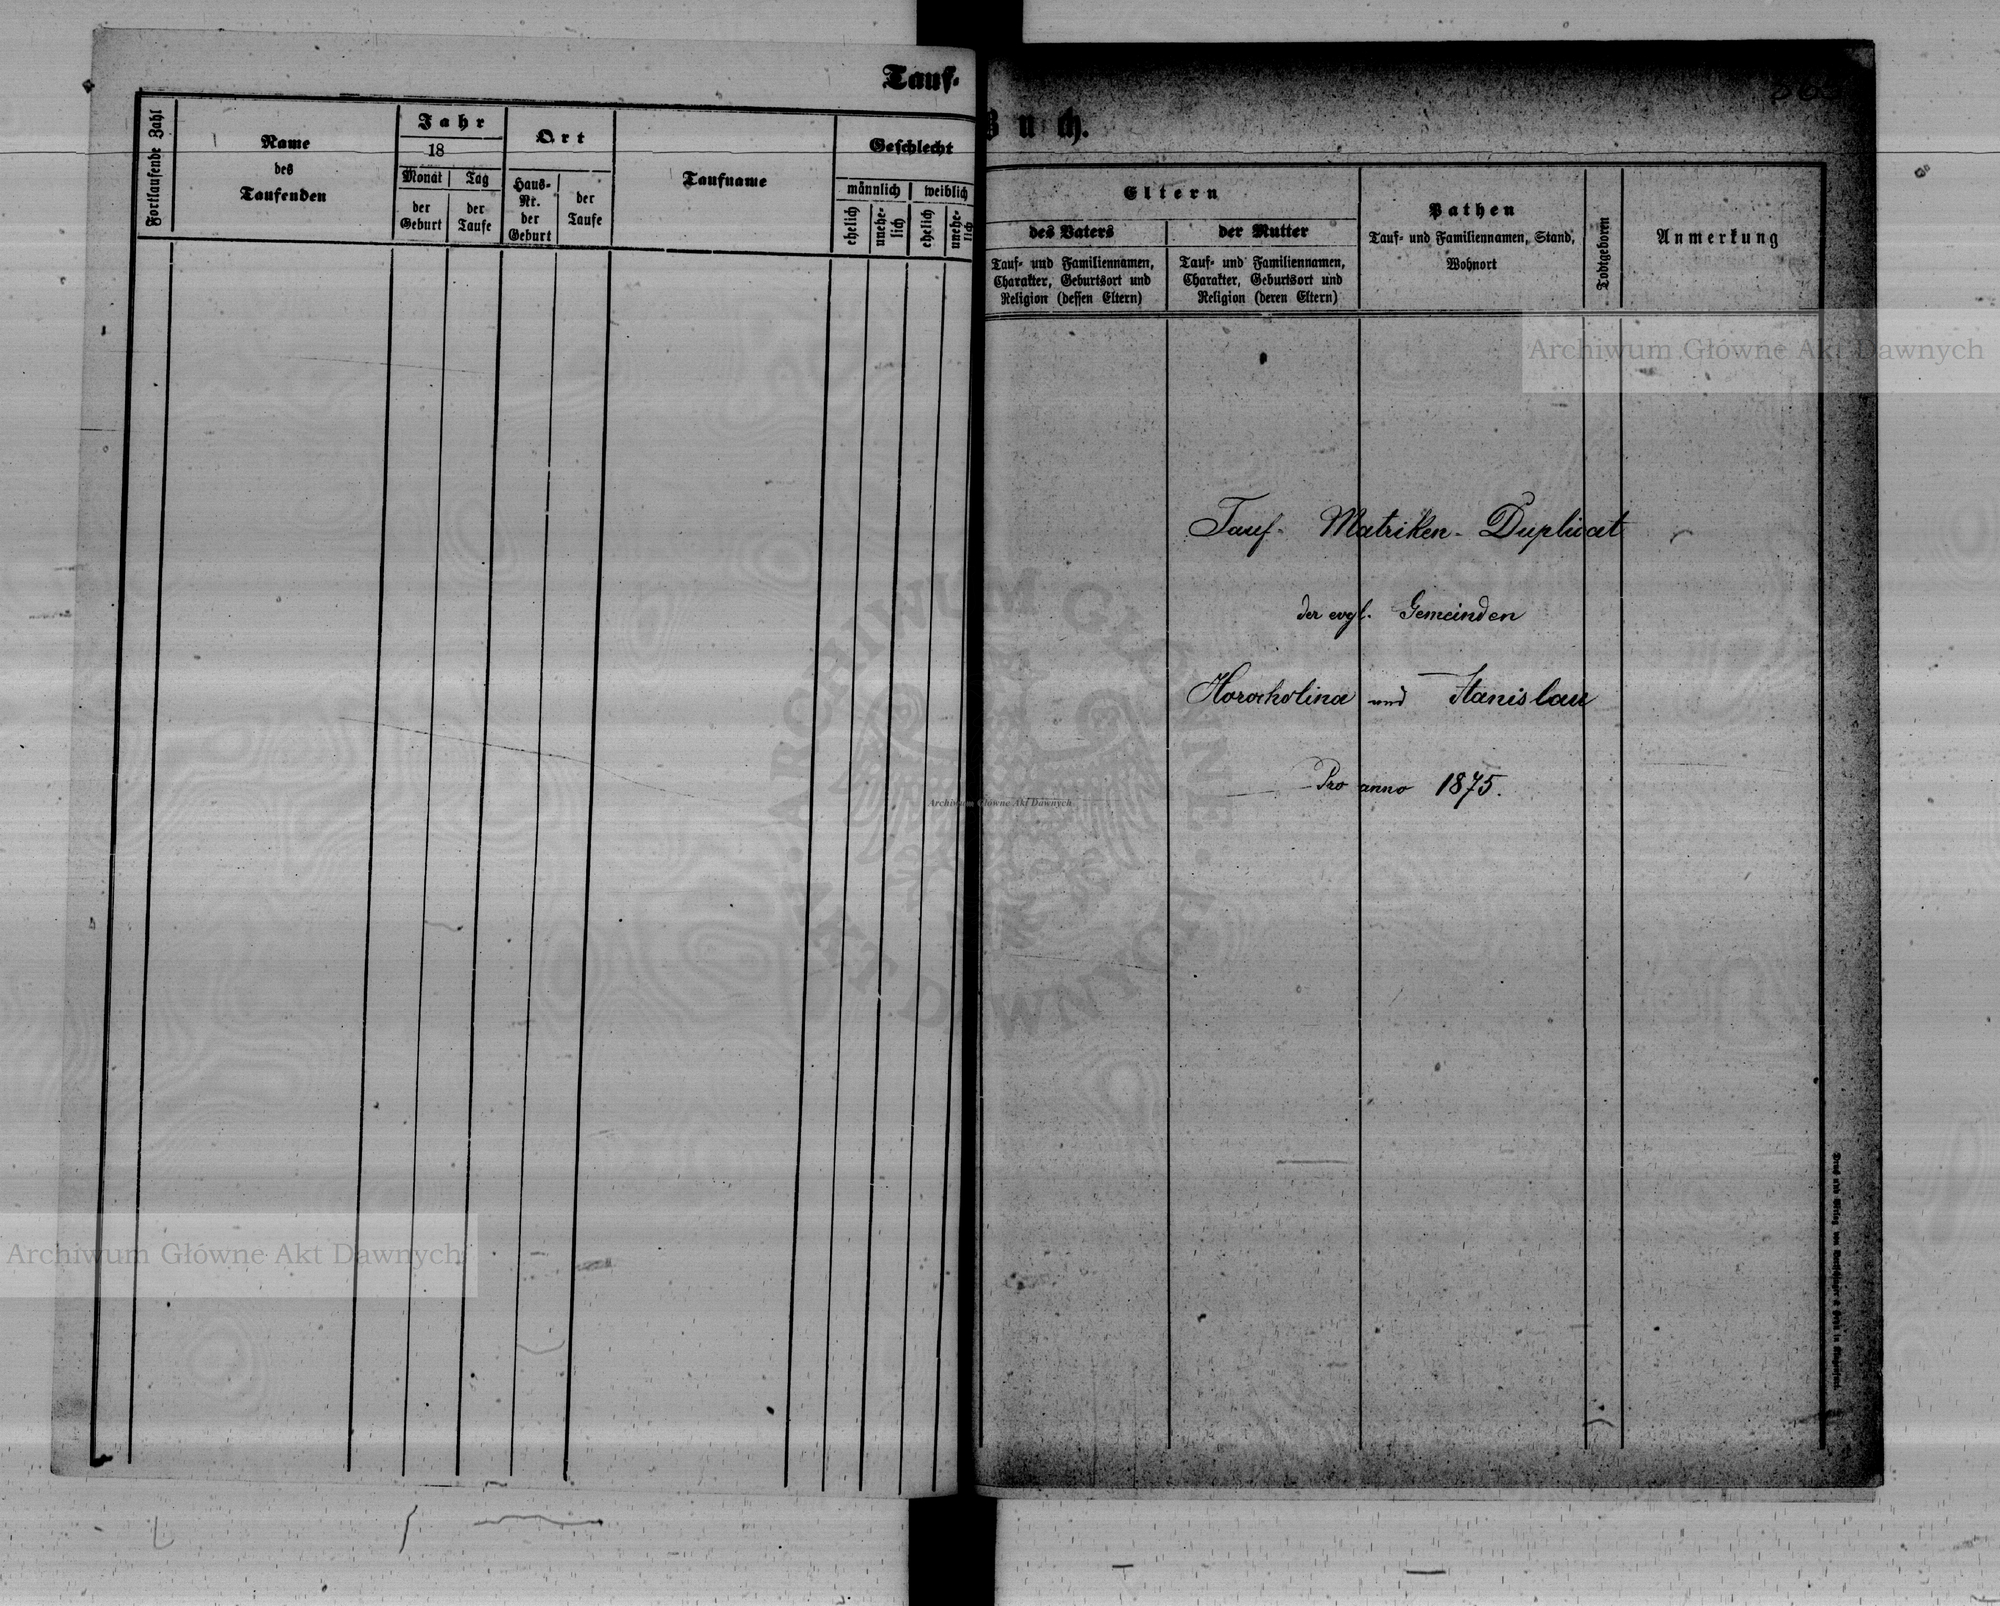 Tauf-
Fortlaufende Zahl
Name
des
Taufenden
Jahr
18
Monat
Tag
der
Geburt
der
Taufe
Ort
Haus-
Nr.
der
Geburt
der
Taufe
Taufname
Geschlecht
männlich
weiblich
ehelich
unehe-
lich
ehelich
unehe-
lich
Buch.
Eltern
des Vaters
Tauf- und Familiennamen,
Charakter, Geburtsort und
Religion (dessen Eltern)
der Mutter
Tauf- und Familiennamen,
Charakter, Geburtsort und
Religion (deren Eltern)
Pathen
Tauf- und Familiennamen, Stand,
Wohnort
Todtgeboren
Anmerkung
Archiwum Główne Akt Dawnych
Tauf- Matriken- Duplicat
der evgl. Gemeinden
Horocholina und Stanislau
Pro anno 1875.
ARCHIWUM GŁÓWNE
AKT DAWNYCH
Archiwum Główne Akt Dawnych
Archiwum Główne Akt Dawnych